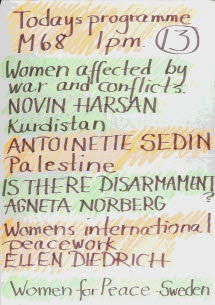 Todays programme
M68 1pm. 13
Women affected by
war and conflicts.
NOVIN HARSAN
Kurdistan
ANTOINETTE SEDIN
Palestine
IS THERE DISARMAMENT?
AGNETA NORBERG
Womens international
peacework
ELLEN DIEDRICH
Women for Peace-Sweden